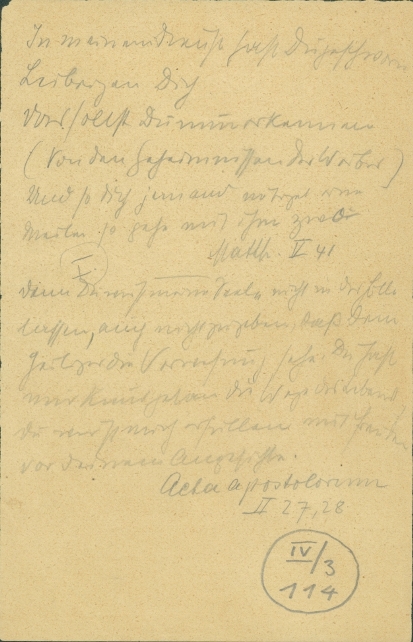 In meinem Dienst hast Du geschworen
Leibeigen Dich
Dies sollst Du nun erkennen
(Von den Geheimnissen der Weiber)
Und so dich jemand nötiget eine
Meile, so gehe mit ihm zwei
Matth. V 41
I
denn Du wirst meine Seele nicht in der Hölle
lassen, auch nicht zugeben, daß Dein
Heiliger die Verwesung sehe. Du hast
mir kund getan die Wege des Lebens,
du wirst mich erfüllen mit Freuden
vor deinem Angesichte.
Acta apostolorum
II 27,28
IV/3
114